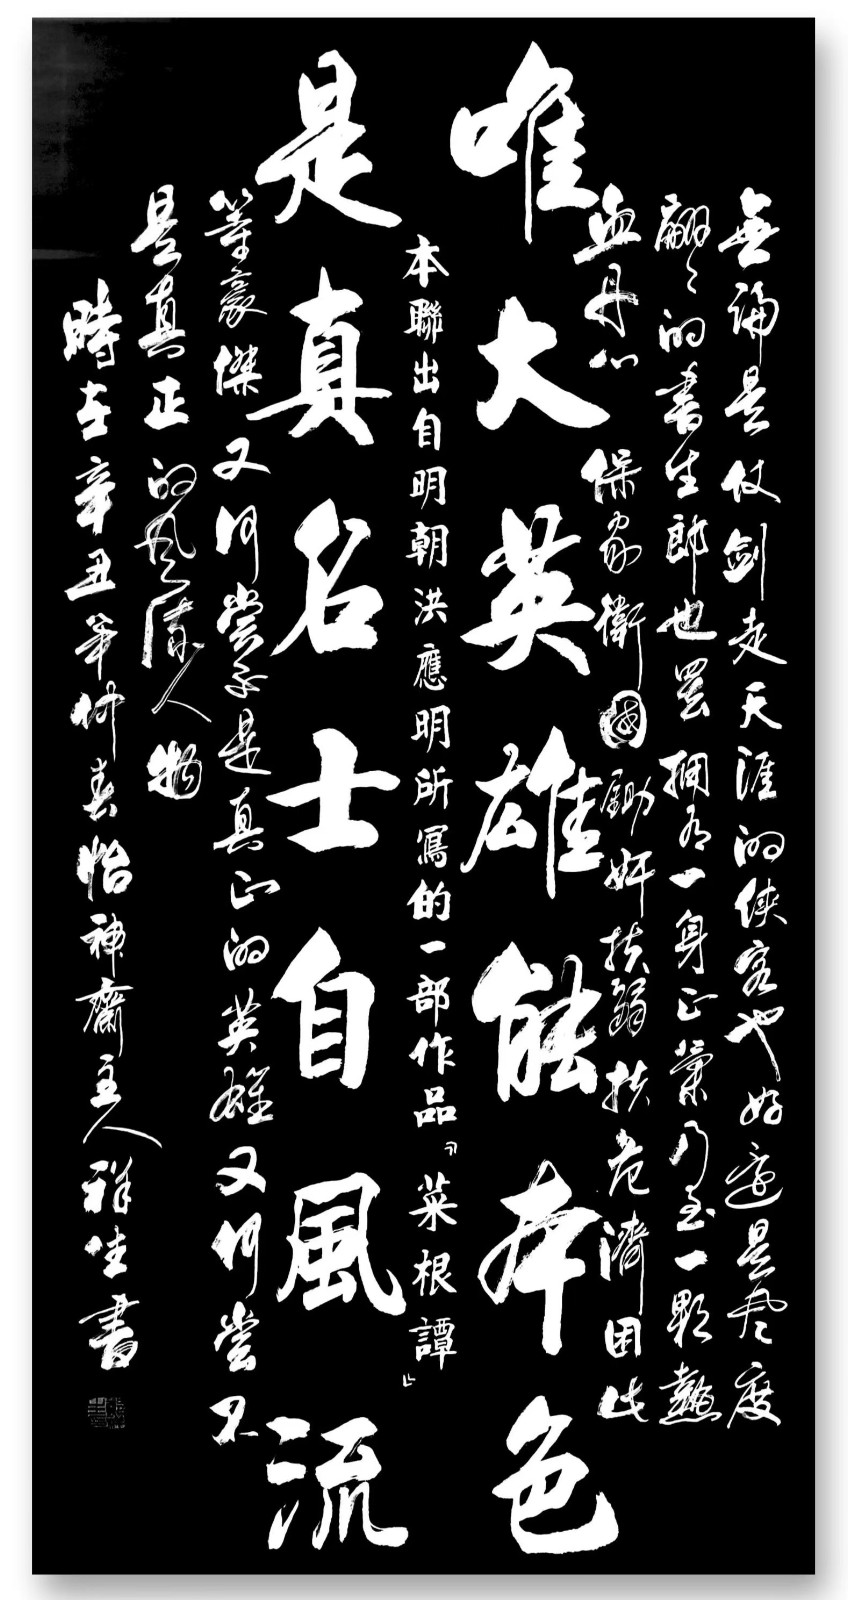 無論是仗劍走天涯的俠客也好還是風度
翩〻的書生郎也罷擁有一身正氣乃至一顆熱
血丹心保家衛國鋤奸扶弱扶危濟困此
唯大英雄能本色
本聯出自明朝洪應明所寫的一部作品『菜根譚』
是真名士自風流
等豪傑又何嘗不是真正的英雄又何嘗不
是真正的風流人物
時在辛丑年仲春怡神齋主人祥生書